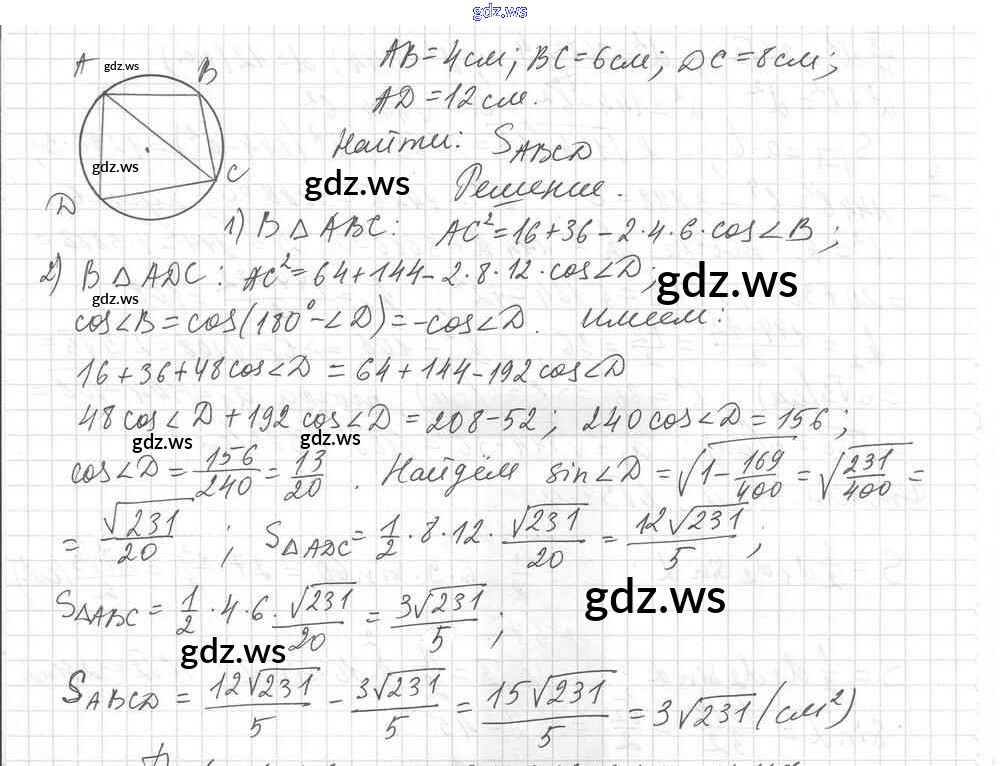 gdz.ws
A B
gdz.ws
AB=4см; BC=6см; DC=8см;
AD=12см.
gdz.ws
Найти: S_ABCD
gdz.ws
C
D
Решение.
1) В △ABC: AC²=16+36-2·4·6·cos∠B;
2) В △ADC: AC²=64+144-2·8·12·cos∠D;
gdz.ws
gdz.ws
cos∠B=cos(180°-∠D)=-cos∠D. Имеем:
16+36+48cos∠D=64+144-192cos∠D
48cos∠D+192cos∠D=208-52; 240cos∠D=156;
gdz.ws gdz.ws
cos∠D=156/240=13/20. Найдём sin∠D=√(1-169/400)=√(231/400)=
=√231/20; S_△ADC=1/2·8·12·√231/20=12√231/5;
S_△ABC=1/2·4·6·√231/20=3√231/5;
gdz.ws
gdz.ws
S_ABCD=12√231/5-3√231/5=15√231/5=3√231(см²)